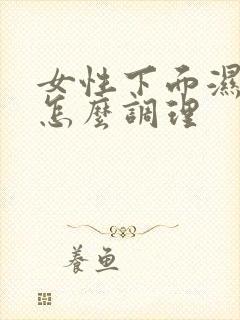 女性下面濕
怎麼調理
養魚